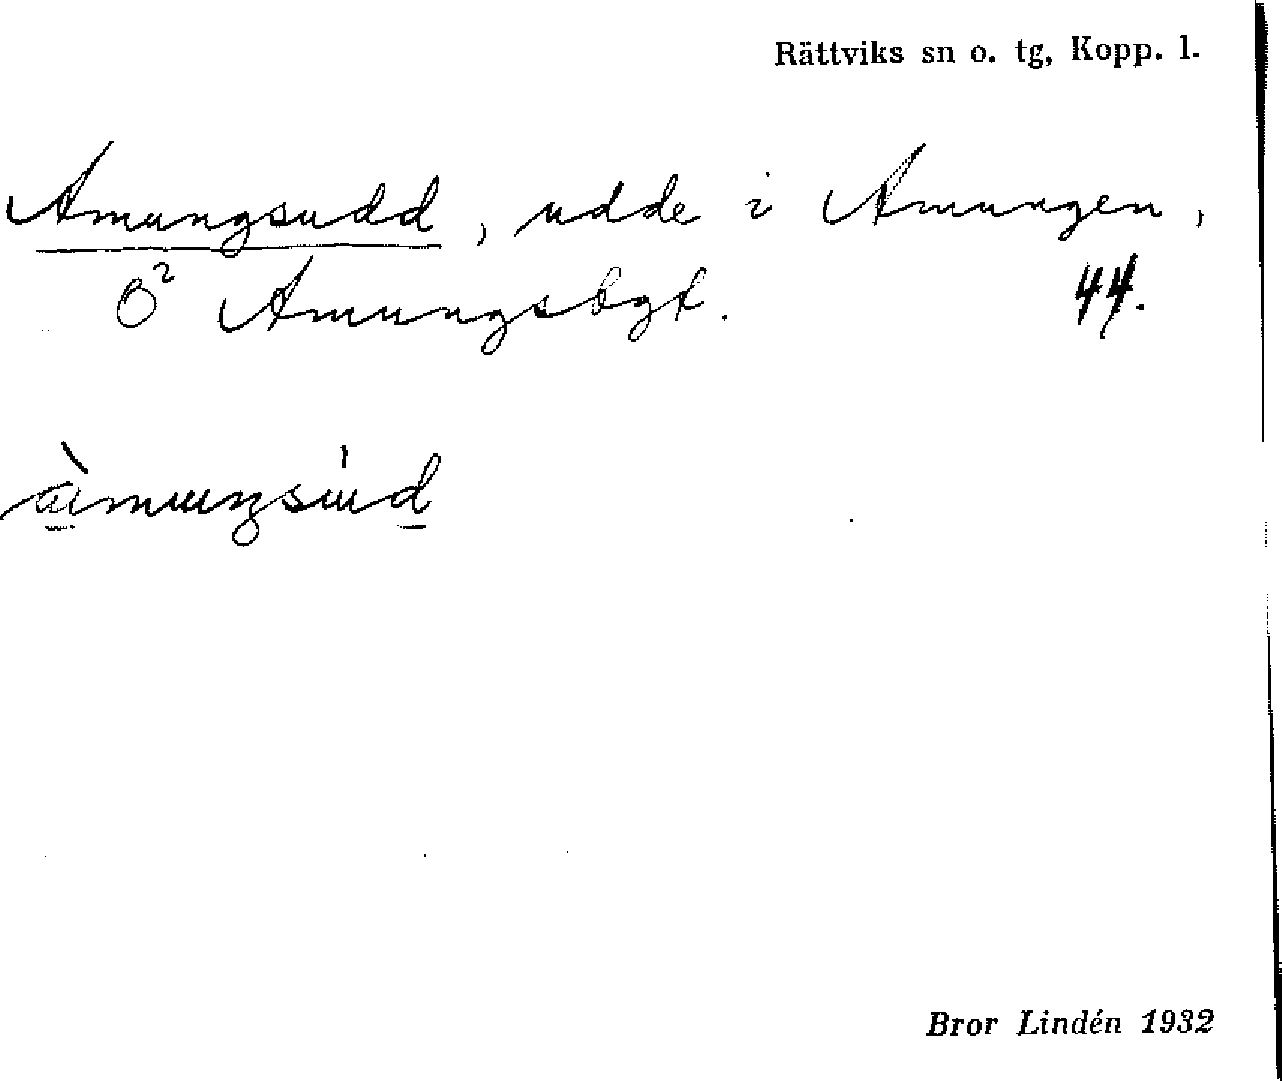 Rättviks sn o. tg, Kopp. l.
Amungsudd, udde i Amungen,
O² Amungsbgt. 44.
àmuŋsúd
Bror Lindén 1932